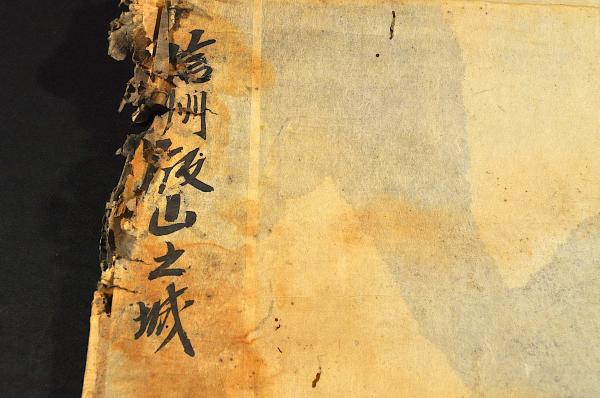 信州殿山之城